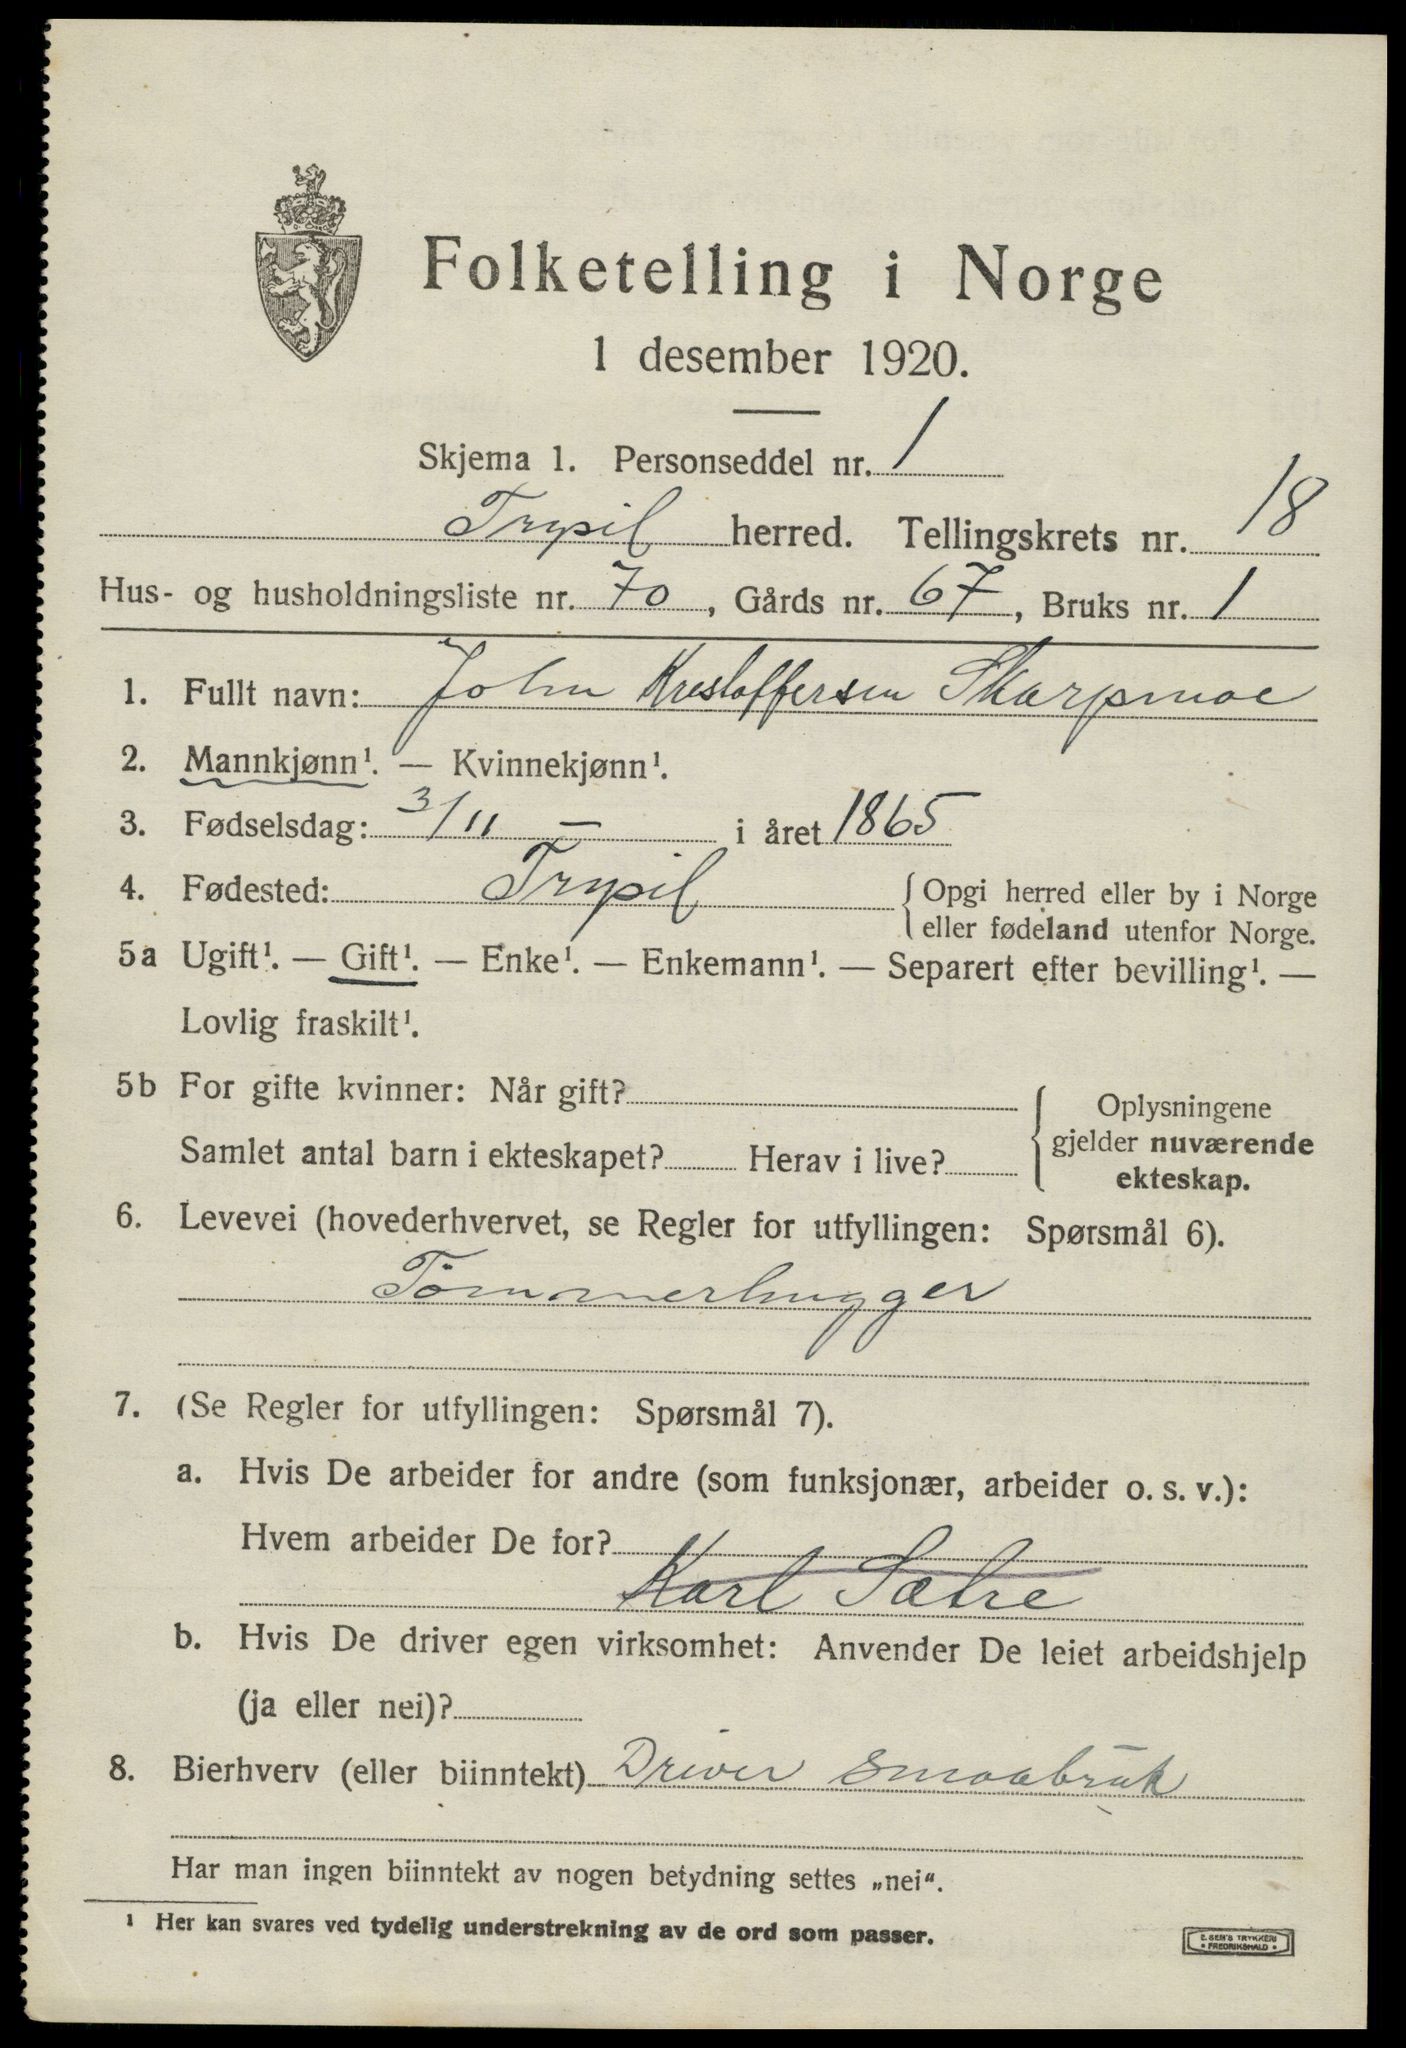 Folketelling i Norge
1 desember 1920.
Skjema 1. Personseddel nr. 1
Trysil herred. Tellingskrets nr. 18
Hus- og husholdningsliste nr. 70, Gårds nr. 67, Bruks nr. 1
1. Fullt navn: John Kristoffersen Skarpmoe
2. Mannkjønn¹. — Kvinnekjønn¹.
3. Fødselsdag: 3/11 — i året 1865
4. Fødested: Trysil { Opgi herred eller by i Norge
eller fødeland utenfor Norge.
5a Ugift¹. — Gift¹. — Enke¹. — Enkemann¹. — Separert efter bevilling¹. —
Lovlig fraskilt¹.
5b For gifte kvinner: Når gift?
Samlet antal barn i ekteskapet? Herav i live?
{ Oplysningene
gjelder nuværende
ekteskap.
6. Levevei (hovederhvervet, se Regler for utfyllingen: Spørsmål 6).
Tømmerhugger
7. (Se Regler for utfyllingen: Spørsmål 7).
a. Hvis De arbeider for andre (som funksjonær, arbeider o. s. v.):
Hvem arbeider De for?
Karl Sætre
b. Hvis De driver egen virksomhet: Anvender De leiet arbeidshjelp
(ja eller nei)?
8. Bierhverv (eller biinntekt) Driver smaabruk
Har man ingen biinntekt av nogen betydning settes „nei“.
¹ Her kan svares ved tydelig understrekning av de ord som passer.
E. SEM'S TRYKKERI
• FREDRIKSHALD •